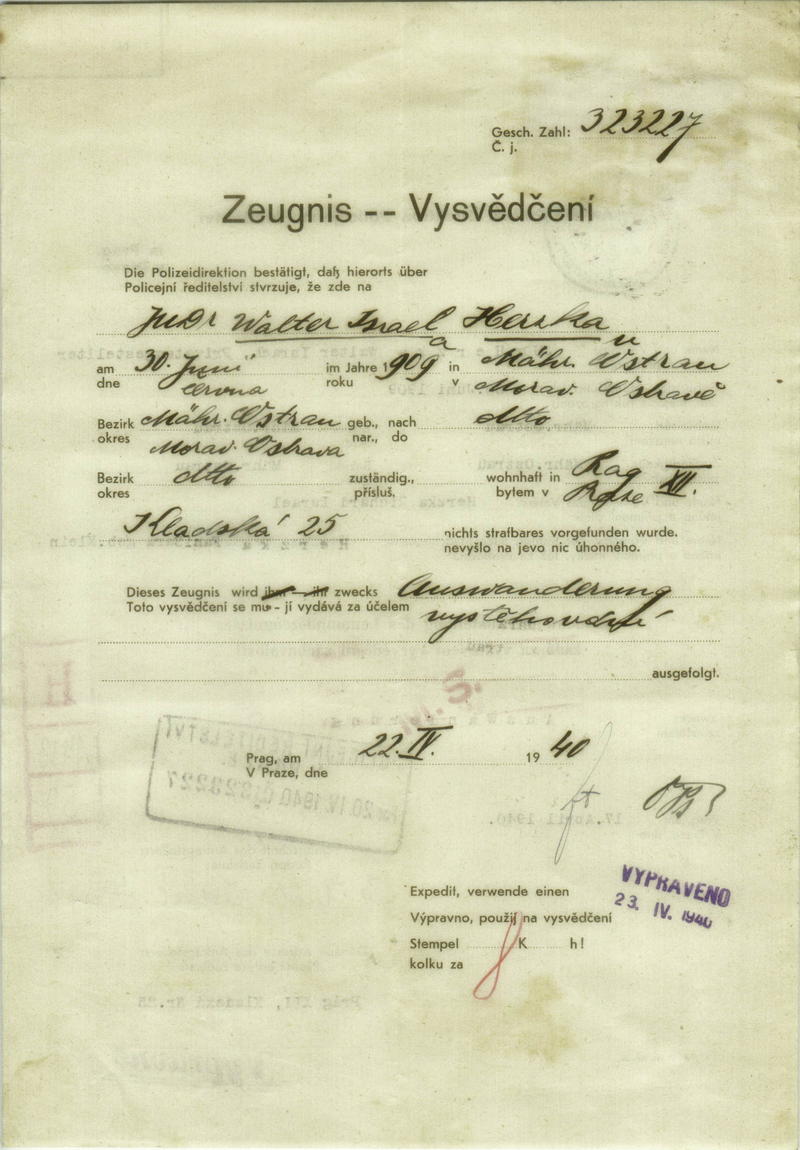 Gesch. Zahl: 323227
Č. j.
Zeugnis -- Vysvědčení
Die Polizeidirektion bestätigt, daß hierorts über
Policejní ředitelství stvrzuje, že zde na
JUDr Walter Israel Herzka
am 30. Juni im Jahre 1909 in Mähr. Ostrau
dne června roku v Morav. Ostravě
Bezirk Mähr. Ostrau geb., nach dtto
okres Morav. Ostrava nar., do
Bezirk dtto zuständig., wohnhaft in Prag XII.
okres přísluš. bytem v Praze
Kladská 25 nichts strafbares vorgefunden wurde.
nevyšlo na jevo nic úhonného.
Dieses Zeugnis wird ihm - ihr zwecks Auswanderung
Toto vysvědčení se mu - jí vydává za účelem vystěhování
ausgefolgt.
Prag, am 22. IV. 1940
V Praze, dne
20 IV 1940 323227
17. April 1940.
Expedit, verwende einen
Výpravno, použij na vysvědčení
Stempel 8 K h!
kolku za
VYPRAVENO
23. IV. 1940
Prag XII, Kladská Nr. 25